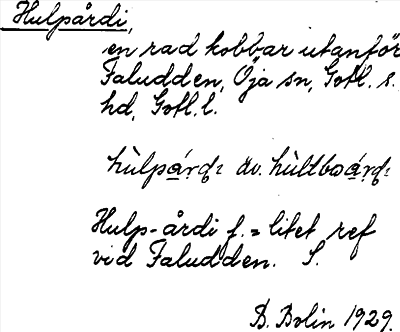 Hulpårdi,
en rad kobbar utanför
Faludden, Öja sn, Gotl. s.
hd, Gotl. l.
Hulp-årdi f. = litet ref
vid Faludden. S.
B. Bolin 1929.